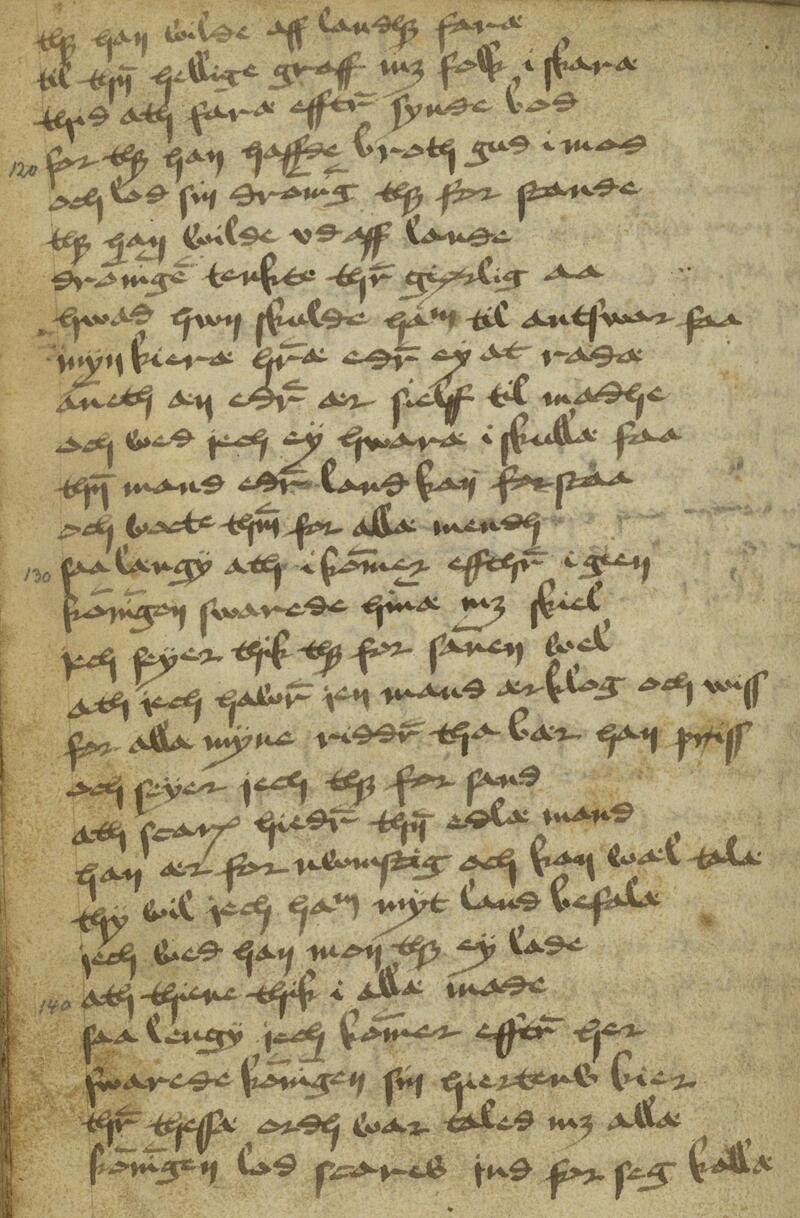 thz han wilde aff landhz faræ
til thn̄ hellige graff mz folk i skaræ
thid ath faræ efftr̄ synde bod
120 for thz han haffde broth gud i mod
och lod sin drōnīg thz for stande
thz han wilde vd aff lande
drōnīgē tenkte thr̄ gierlig aa
hwad hwn skulde hām til antswar faa
myn kieræ hr̄æ edr̄ ey at radæ
āneth æn edr̄ ær sielff til madhe
och wed jech eÿ hwaræ i skullæ faa
thn̄ mand edr̄ land kan forstaa
och wocte thm̄ for allæ mendh
130 saa langÿ ath i kōmer effthr̄ i gien
kōnīgen swarede hīnæ mz skiel
jech seyer thik thz for sānen wel
ath jech hawr̄ jen mand ær klog och wiss
for alla mÿne riddr̄ tha bær han priss
och seyer jech thz for sand
ath scarp hiedr̄ thn̄ edlæ mand
han ær for nwmstig och kan wæl talæ
thÿ wil jech hām mÿt land befalæ
jech wed han mon thz eÿ lade
140 ath thiene thik i allæ made
saa lengÿ jech kōmer efftr̄ her
swarede kōnīgen sin hiertens kier
thr̄ thessæ ordh war taled mz allæ
kōnīgen lod scares ind for seg kallæ